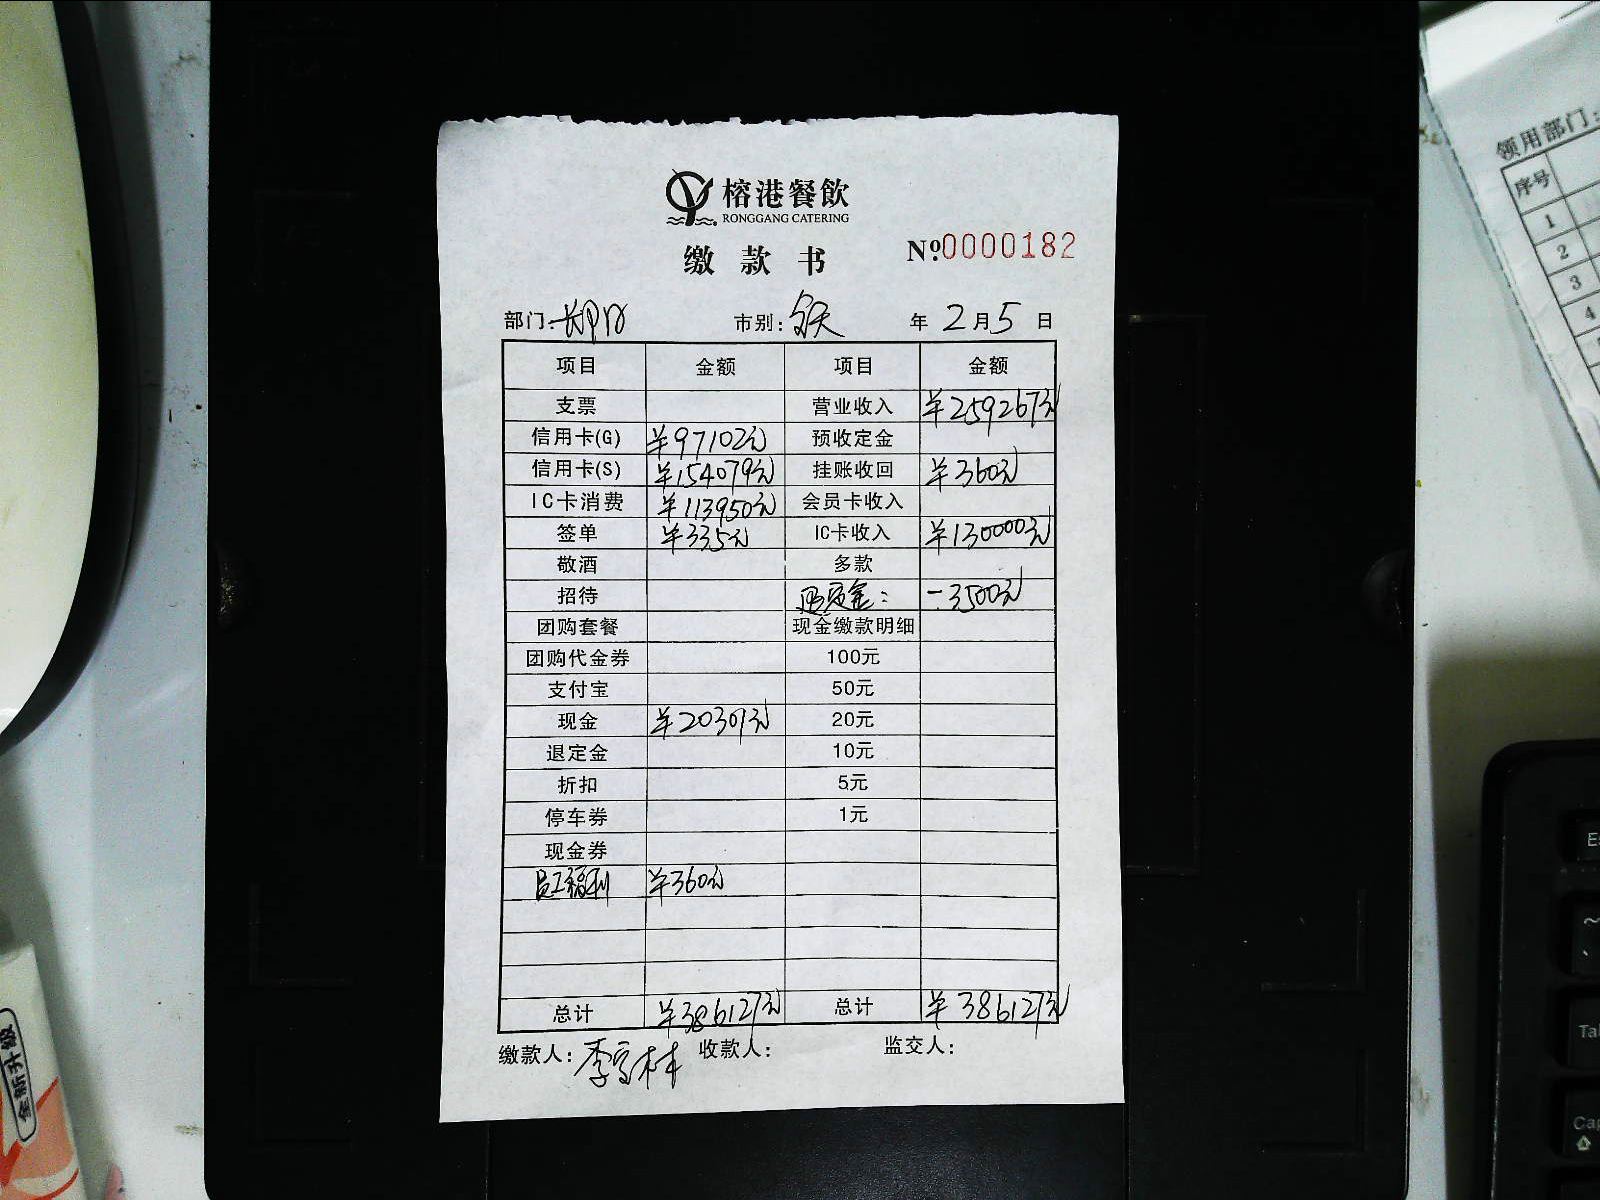 榕港餐飲
RONGGANG CATERING
缴款书 №0000182
部门: 市别: 全天 年 2 月 5 日
项目 金额 项目 金额
支票 营业收入 ¥259267元
信用卡(G) ¥97102元 预收定金
信用卡(S) ¥154079元 挂账收回 ¥360元
IC卡消费 ¥113950元 会员卡收入
签单 ¥335元 IC卡收入 ¥130000元
敬酒 多款
招待 退定金: -3500元
团购套餐 现金缴款明细
团购代金券 100元
支付宝 50元
现金 ¥20301元 20元
退定金 10元
折扣 5元
停车券 1元
现金券
员工福利 ¥360元
总计 ¥386127元 总计 ¥386127元
缴款人: 李 林 收款人: 监交人:
领用部门:
序号
1
2
3
4
全新升级